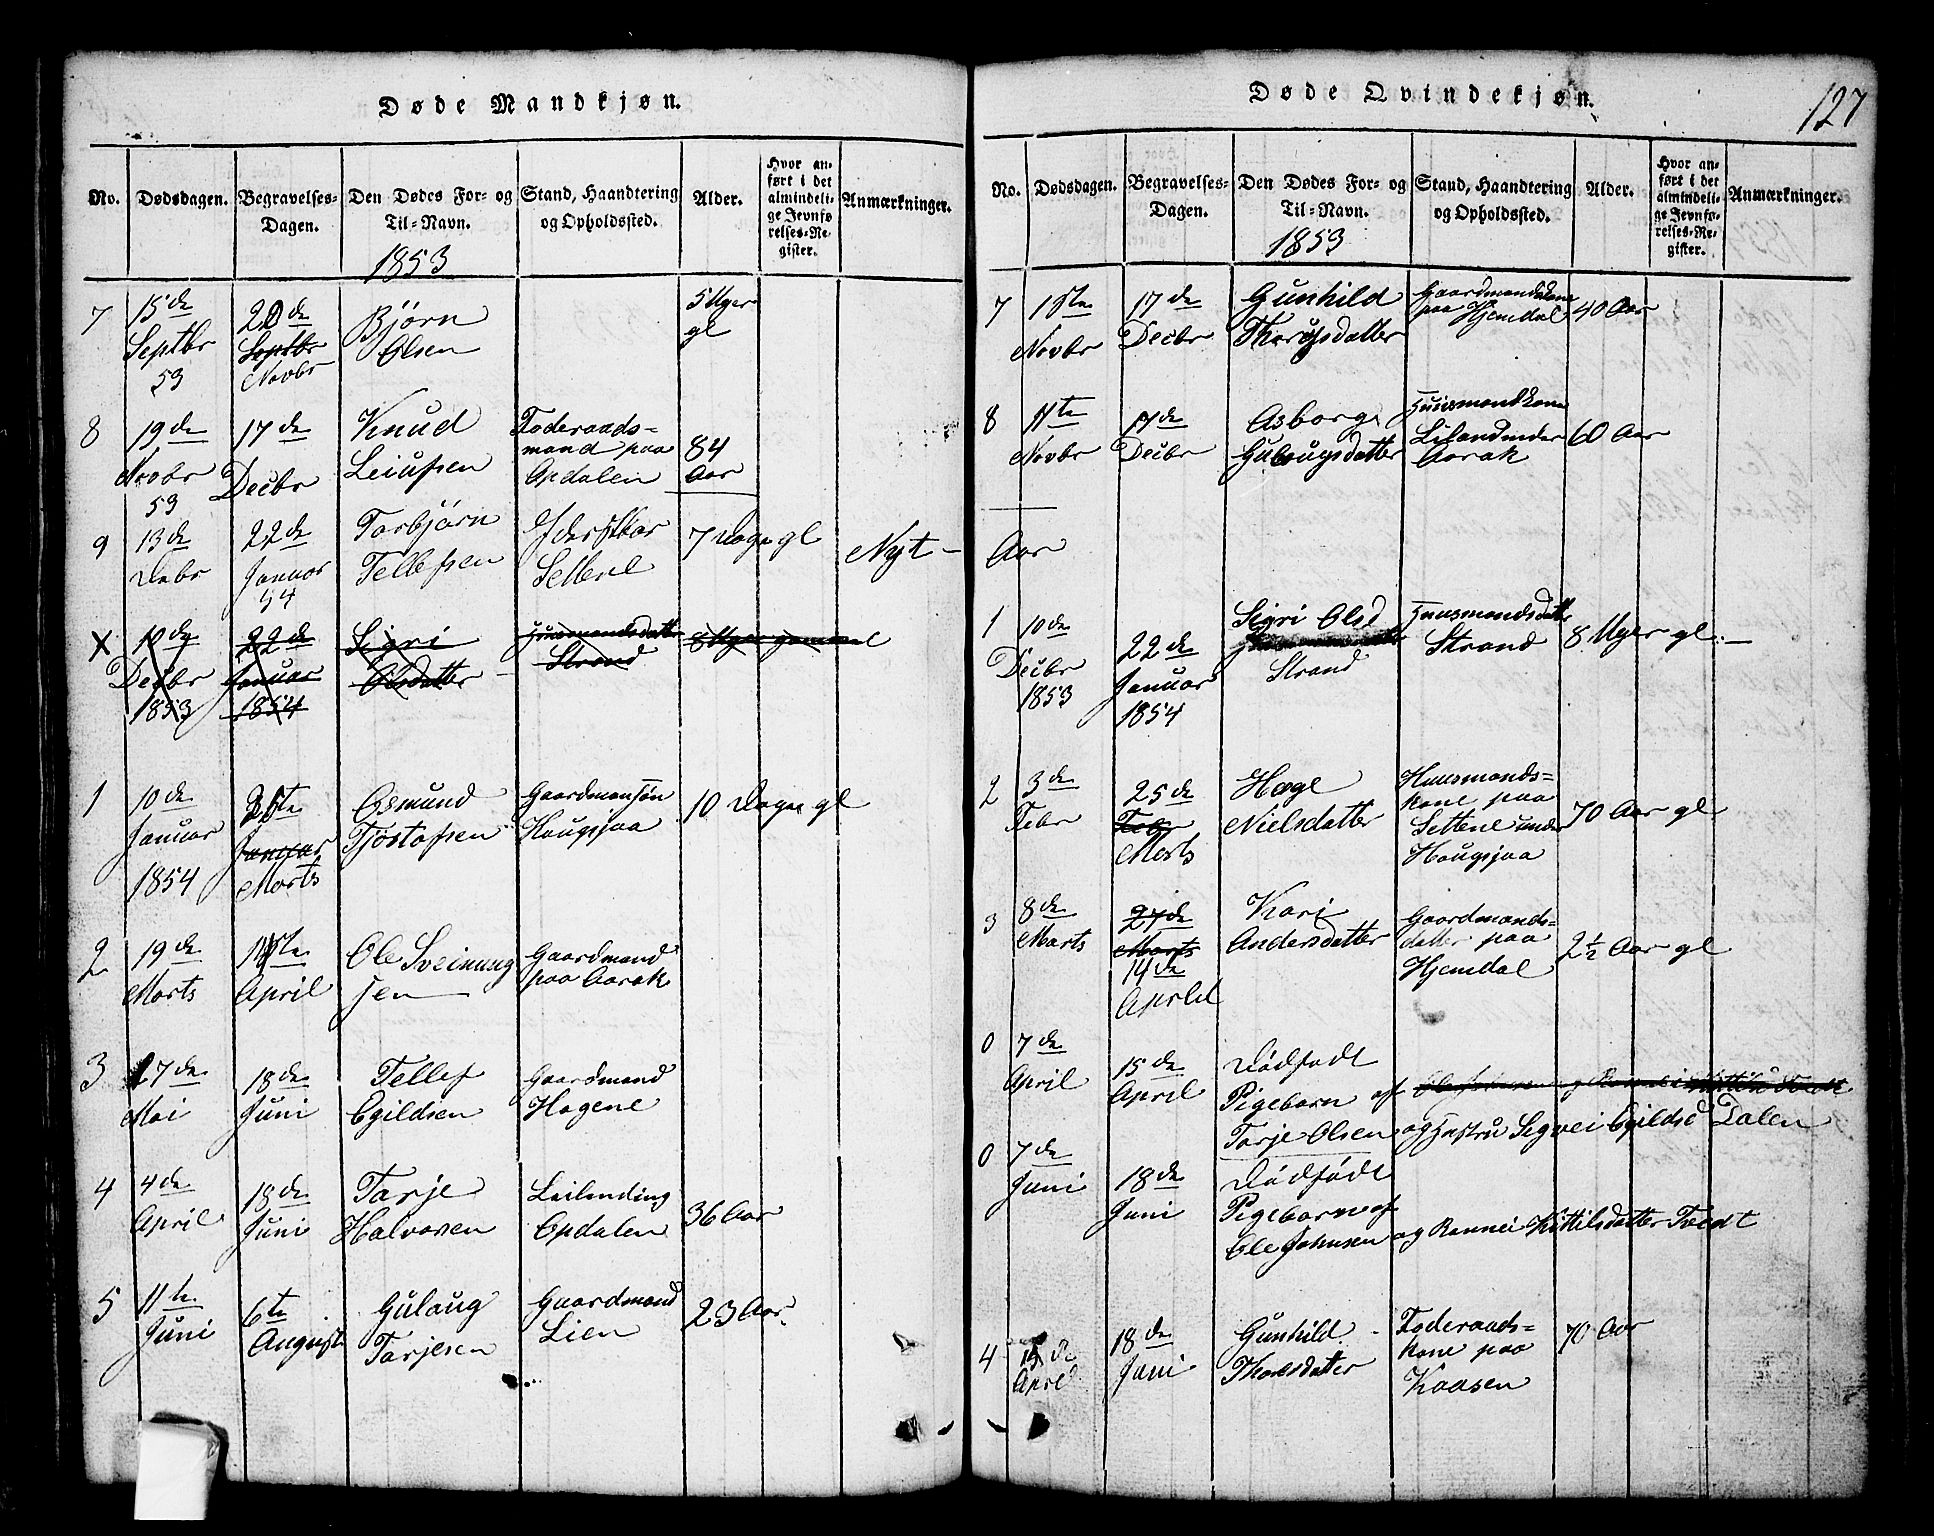 Døde Mandkjøn.
No. Dødsdagen. Begravelses-Dagen. Den Dødes For- og Til-Navn. Stand, Haandtering og Opholdssted. Alder. Hvor anført i det almindelige Jevnførelses-Register. Anmærkninger.
1853
7 15de Septbr 53
20de Septbr Novbr
Bjørn Olsen
5 Uger gl
8 19de Novbr 53
17de Decbr
Knud Leiufsen
Foderaads-
mand paa
Opdalen
84 Aar
9 13de Debr
22de Januar 54
Torbjørn Tellefsen
Settene
7 Dage gl
Nyt -
X 10de Decbr 1853
22de Januar 1854
Sigri Olsdatter
Huusmandsdatter
Strand
8 Uger gammel
1 10de Januar 1854
Januar Marts
Osmund Tjøstofsen
Gaardmansøn
Haugsjaa
10 Dage gl
2 19de Marts
April
Ole Sveinung
sen
Gaardmand
paa Aarak
3 27de Mai
18de Juni
Tellef Egildsen
Gaardmand
Hagene
4 4de April
18de Juni
Tarje Halvorsen
Leilending
Opdalen
36 Aar
5 11te Juni
6te August
Gulaug Tarjesen
Gaardmand
Lien
23 Aar
Døde Qvindekjøn.
127
No. Dødsdagen. Begravelses-Dagen. Den Dødes For- og Til-Navn. Stand, Haandtering og Opholdssted. Alder. Hvor anført i det almindelige Jevnførelses-Register. Anmærkninger.
1853
7 1ste Novbr
17de Decbr
Gunhild
Gaardmandskone
paa Hjemdal
40 Aar
8 11te Novbr
17de Decbr
Asborg
Gulougsdatter
Huusmandkone
Liland under
Aarak
60 Aar
Aar
1 10de Decbr 1853
22de Januar 1854
Sigri Olsd
Strand
Huusmandsdatter
Strand
8 Uger gl. -
2 3de Febr
25de Febr Marts
Hæge Nielsdatter
Huusmands=
kone paa
Settene under
Hougsjaa
70 Aar gl
3 8de Marts
27de Marts
14de April
Kari Andersdatter
Gaardmands-
datter paa
Hjemdal
2½ Aar gl
0 7de April
15de April
Dødfødt
Pigebarn af
Tarje Olsen og Hustru Sigvei Egildsd Dalen
0 7de Juni
18de Juni
Dødfødt
Pigebarn af
Ole Johnsen og Rannei Kittilsdatter Tvedt
4 April
18de Juni
Gunhild
Foderaads=
kone paa
Kaasen
70 Aar